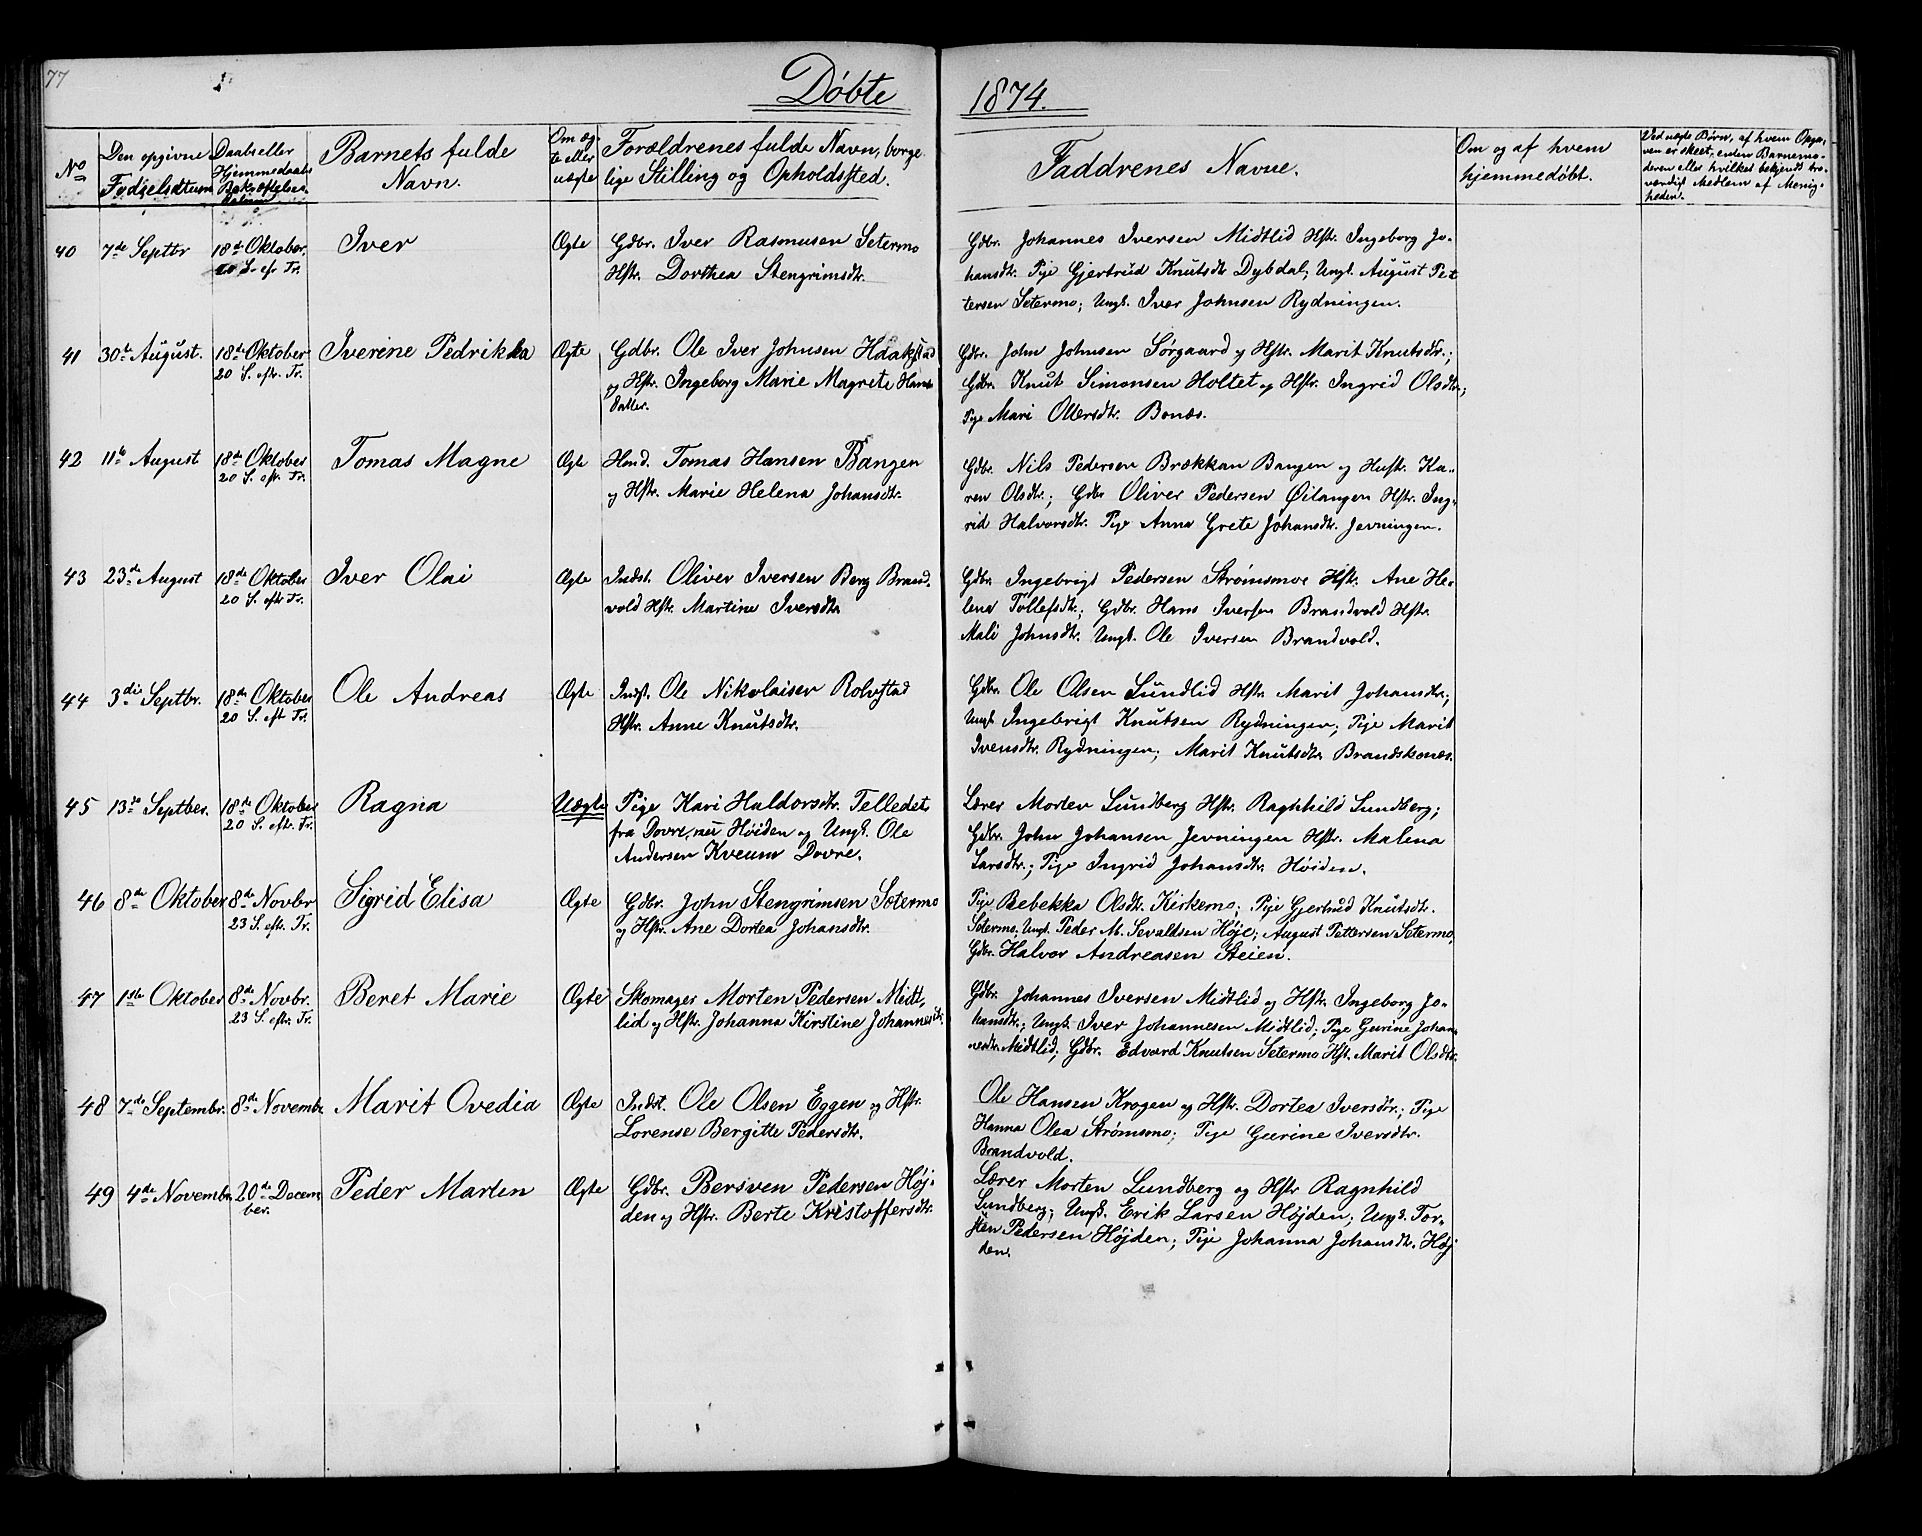 77
Døbte 1874.
No
Den opgivne Fødselsdatum
Daabs eller Hjemmedaabs Bekræftelses datum
Barnets fulde Navn.
Om ægte eller uægte
Forældrenes fulde Navn, borgelige Stilling og Opholdssted.
Faddrenes Navne.
Om og af hvem hjemmedøbt.
Ved uægte Børn, af hvem Opgaven er skeet, enden Barnemoderen eller hvilket bekjendt troværdigt Medlem af Menigheden.
40 7de Septbr 18de Oktober. Iver Ægte Gdbr. Iver Rasmusen Setermo
20 S. eft. Tr. Hstr. Dorthea Stengrimsdtr.
Gdbr. Johannes Iversen Midtlid Hstr. Ingeborg Jo-
hansdtr. Pige Gjertrud Knutsdtr Dybdal; Ungk. August Pet
tersen Setermo; Ungk. Iver Johnsen Rydningen.
41 30te August. 18de Oktober Iverine Pedrikka Ægte Gdbr. Ole Iver Johnsen Haakstad
20 S. eftr. Tr. og Hstr. Ingeborg Marie Magrete Hans
datter.
Gdbr. John Johnsen Sørgaard og Hstr. Marit Knutsdtr.;
Gdbr. Knut Simonsen Holtet og Hstr. Ingrid Olsdtr;
Pige Mari Ollersdtr. Bonæs.
42 11te August 18de Oktober Tomas Magne Ægte Hmd. Tomas Hansen Bangen
20 S. eftr. Tr. og Hstr. Marie Helena Johansdtr.
Gdbr. Nils Pedersen Brækkan Bangen og Hustr. Ka-
ren Olsdtr.; Gdbr Oliver Pedersen Øilangen Hstr. Ing-
rid Halvorsdtr. Pige Anna Grete Johansdtr. Jevningen.
43 23de August 18de Oktober Iver Olai Ægte Indst. Oliver Iversen Berg Brand-
20 S. eftr Tr. vold Hstr. Martine Iversdtr
Gdbr. Ingebrigt Pedersen Strømsmoe Hstr. Ane He-
lena Tollefsdtr.; Gdbr. Hans Iversen Brandvold Hstr
Mali Johnsdtr. Ungk. Ole Iversen Brandvold.
44 3die Septbr. 18de Oktober Ole Andreas Ægte Indst. Ole Nikolaisen Rolvstad
20 S. eft Tr. Hstr. Anne Knutsdtr.
Gdbr. Ole Olsen Lundlid Hstr. Marit Johansdtr.;
Ungk. Ingebrigt Knutsen Rydningen; Pige Marit
Ivensdtr. Rydningen; Marit Knutsdtr Brandskones.
45 13de Septber. 18de Oktober Ragna Uægte Pige Kari Haldorsdtr. Telledet
20 S. eftr. Tr. fra Dovre, nu Høiden og Ungk. Ole
Andersen Kveum Dovre.
Lærer Morten Lundberg Hstr. Ragnhild Lundberg;
Gdbr. John Johansen Jevningen Hstr. Malena
Larsdtr.; Pige Ingrid Johansdtr. Høiden.
46 8de Oktober 8de Novbr Sigrid Elisa Ægte Gdbr. John Stengrimsen Setermo
23 S. eftr. Tr. og Hstr. Ane Dortea Johansdtr.
Pige Rebekka Olsdtr. Kirkemo; Pige Gjertrud Knutsdtr.
Setermo, Ungk. Peder M. Sevaldsen Høje; August Pettersen Setermo,
Gdbr. Halvor Andreasen Steien.
47 1ste Oktober 8de Novbr. Beret Marie Ægte Skomager Morten Pedersen Midt,
23 S. eftr. Tr. lid og Hstr. Johanna Kirstine Johannesdtr.
Gdbr. Johannes Iversen Midtlid og Hstr. Ingeborg Jo-
hansdtr.; Ungk. Iver Johannesen Midtlid; Pige Gurine Johan
nesdtr. Midtlid; Gdbr. Edvard Knutsen Setermo Hst. Marit Olsdtr.
48 7de Septembr. 8de Novembr Marit Ovedia Ægte Indst. Ole Olsen Eggen og Hstr.
Lorense Bergitte Pedersdtr.
Ole Hansen Krogen og Hstr. Dortea Iversdtr.; Pige
Hanna Olea Strømsmo; Pige Gurine Iversdtr.
Brandvold.
49 4de Novembr. 20de Decem Peder Marten Ægte Gdbr. Bersven Pedersen Høj-
ber. den og Hstr. Berte Kristoffersdtr.
Lærer Morten Lundberg og Hstr Ragnhild
Lundberg; Ungk. Erik Larsen Højden; Ungk. Tor-
sten Pedersen Højden; Pige Johanna Johansdtr. Høj
den.